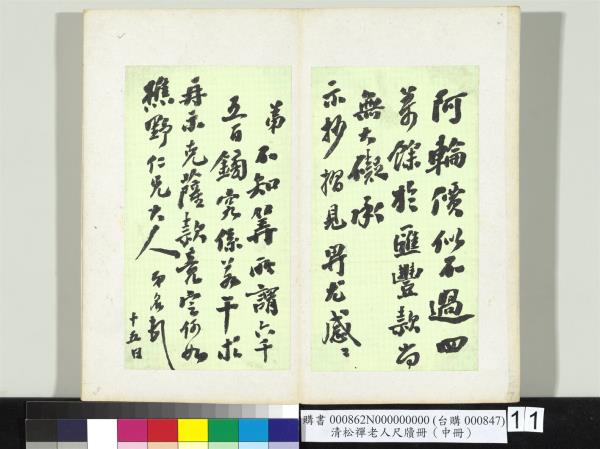 阿輪價似不過四
萬餘於匯豐款尚
無大礙承
示抄摺見畀尤感〻
弟不知算所謂六千
五百鎊究係若干求
再示克薩款竟空何如
樵野仁兄大人 弟名頓
十五日
購書 000862N000000000 (台購 000847)
清松禪老人尺牘冊（中冊）
11